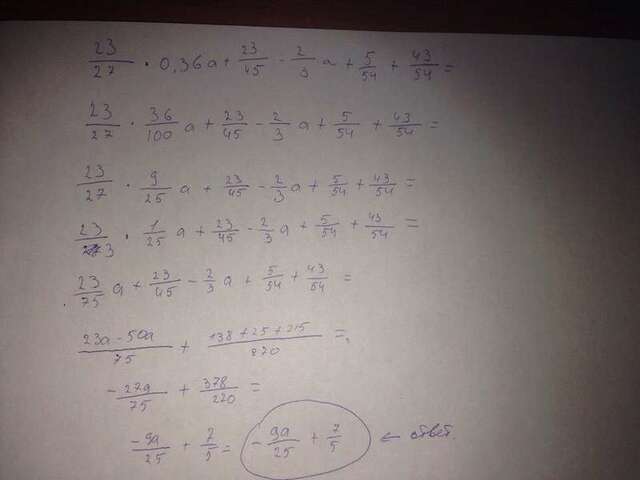 23/27 · 0,36a + 23/45 - 2/3 a + 5/54 + 43/54 =
23/27 · 36/100 a + 23/45 - 2/3 a + 5/54 + 43/54 =
23/27 · 9/25 a + 23/45 - 2/3 a + 5/54 + 43/54 =
23/3 · 1/25 a + 23/45 - 2/3 a + 5/54 + 43/54 =
23/75 a + 23/45 - 2/3 a + 5/54 + 43/54 =
23a - 50a/75 + 138 + 25 + 215/270 =
- 27a/75 + 378/270 =
-9a/25 + 7/5 = - 9a/25 + 7/5 ← ответ